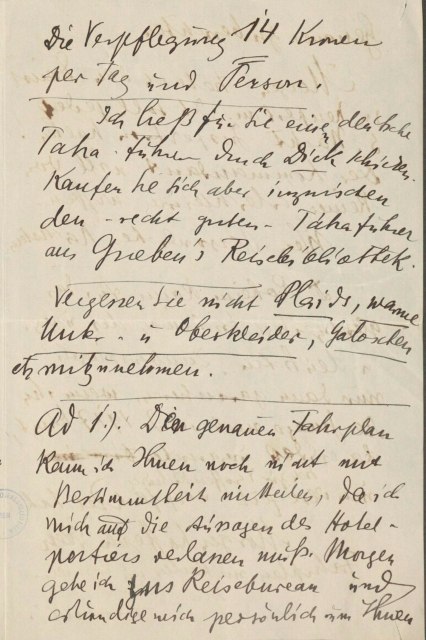 Die Verpflegung 14 Kronen
per Tag und Person.
Ich ließ für Sie einen deutschen
Tatra führer durch Dick schicken.
Kaufen Sie sich aber inzwischen
den - recht guten - Tatraführer
aus Grieben's Reisebibliothek.
Vergessen Sie nicht Plaids, warme
Unter- u Oberkleider, Galoschen
etz mitzunehmen.
Ad 1.). Den genauen Fahrplan
kann ich Ihnen noch nicht mit
Bestimmtheit mitteilen, da ich
mich auf die Aussagen des Hotel-
portiers verlassen muß. Morgen
gehe ich ins Reisebureau und
erkundige mich persönlich um Ihnen